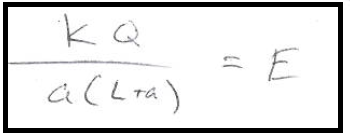 KQ
a(L+a) = E